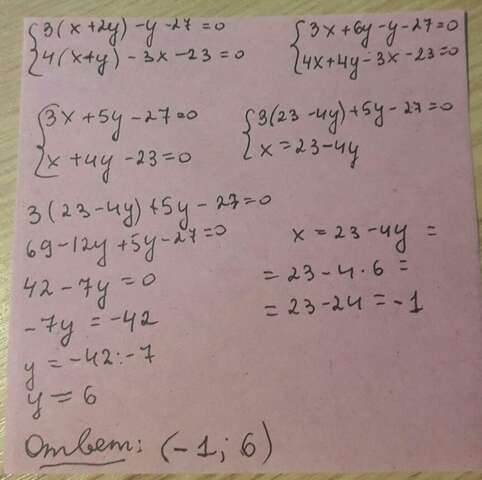 {3(x+2y)-y-27=0
{4(x+y)-3x-23=0
{3x+6y-y-27=0
{4x+4y-3x-23=0
{3x+5y-27=0
{x+4y-23=0
{3(23-4y)+5y-27=0
{x=23-4y
3(23-4y)+5y-27=0
69-12y+5y-27=0
42-7y=0
-7y=-42
y=-42:-7
y=6
x=23-4y=
=23-4·6=
=23-24=-1
Ответ: (-1; 6)